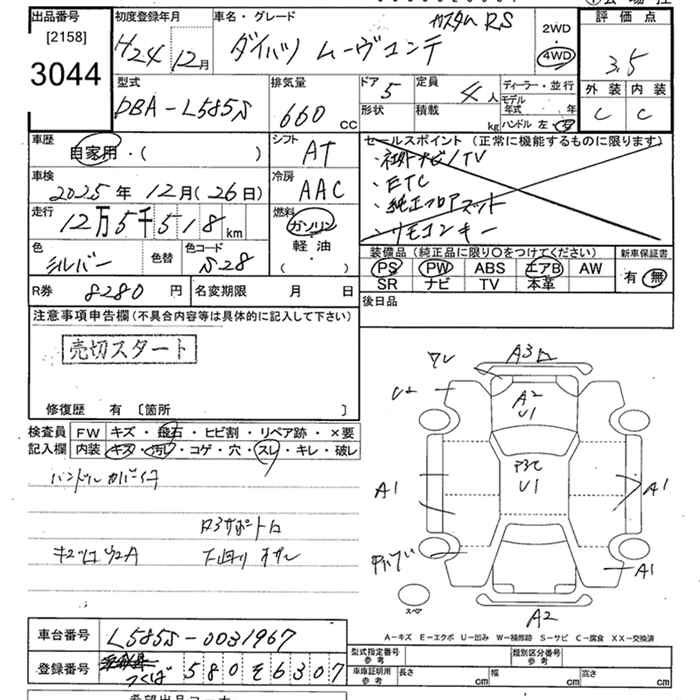 出品番号 [2158] 3044
初度登録年月 H24年12月
車名・グレード ダイハツ ムーヴコンテ カスタム RS
2WD
4WD
評価点 3.5
外装 内装
C C
型式 DBA-L585S
排気量 660 cc
ドア 5
定員 4人
形状
積載 kg
ディーラー・並行
モデル年式 年
ハンドル 左・右
車歴 自家用・( )
シフト AT
車検 2025年12月(26日)
冷房 AAC
走行 12万5千518km
燃料 ガソリン
軽油
( ・ )
色 シルバー
色替
色コード S28
セールスポイント (正常に機能するものに限ります)
・社外ナビ/TV
・ETC
・純正フロアマット
・リモコンキー
装備品 (純正品に限り○をつけてください)
PS PW ABS エアB AW
SR ナビ TV 本革
新車保証書
有・無
R券 8280円
名変期限 月 日
後日品
注意事項申告欄(不具合内容等は具体的に記入して下さい)
売切スタート
修復歴 有 [箇所 ]
検査員記入欄
FW キズ・飛石・ヒビ割・リペア跡・×要
内装 キズ・汚れ・コゲ・穴・スレ・キレ・破レ
ハンドルカバーイタミ
下廻りサビ
ワレ
A3
U2
A2
U1
U1
A1
A1
A1
A2
スペア
A-キズ E-エクボ U-凹み W-補修跡 S-サビ C-腐食 XX-交換済
車台番号 L585S-0031967
登録番号 つくば 580 そ 6307
型式指定番号 参考
類別区分番号 参考
車庫証明用 参考 長さ cm 幅 cm 高さ cm
希望出品コーナー